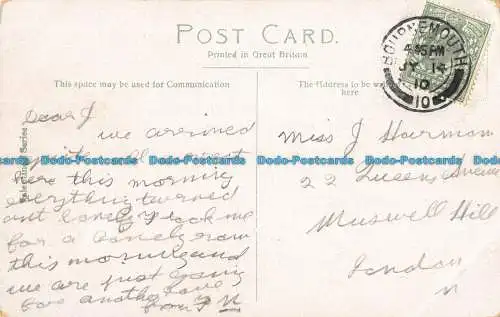 POST CARD.
Printed in Great Britain
This space may be used for Communication
The Address to be
here
BOURNEMOUTH
4 45 PM
JY 14
10
Valentines Series
Dear J
we arrived
here this morning
everything turned
out lovely
me
for a lovely
this morning and
we are just going
for another
from
Miss J Harman
22 Queens Avenue
Muswell Hill
London
N
Dodo-Postcards Dodo-Postcards Dodo-Postcards Dodo-Postcards
Dodo-Postcards Dodo-Postcards Dodo-Postcards Dodo-Postcards